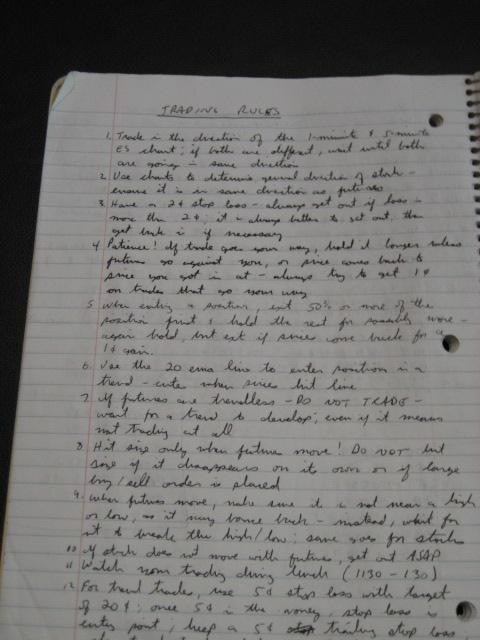 TRADING RULES
1. Trade in the direction of the 1-minute & 5-minute
ES chart; if both are different, wait until both
are going in same direction
2. Use charts to determine general direction of stock -
ensure it is in same direction as futures
3. Have a 2¢ stop loss - always get out if loss is
more than 2¢; it is always better to get out, then
get back in if necessary
4. Patience! If trade goes your way, hold it longer unless
futures go against you, or price comes back to
price you got in at - always try to get 1¢
on trades that go your way
5. When entering a position, exit 50% or more of the
position first & hold the rest for possibly more -
again hold, but exit if price comes back for a
1¢ gain.
6. Use the 20 ema line to enter position in a
trend - enter when price hits line
7. If futures are trendless - DO NOT TRADE -
wait for a trend to develop, even if it means
not trading at all
8. Hit size only when futures move! DO NOT hit
size if it disappears on its own or if large
buy/sell order is placed
9. When futures move, make sure it is not near a high
or low, as it may bounce back - instead, wait for
it to break the high/low; same goes for stock
10. If stock does not move with futures, get out ASAP
11. Watch your trading during lunch (1130 - 130)
12. For trend trades, use 5¢ stop loss with target
of 20¢; once 5¢ in the money, stop loss is
entry point; keep a 5¢ trailing stop loss,